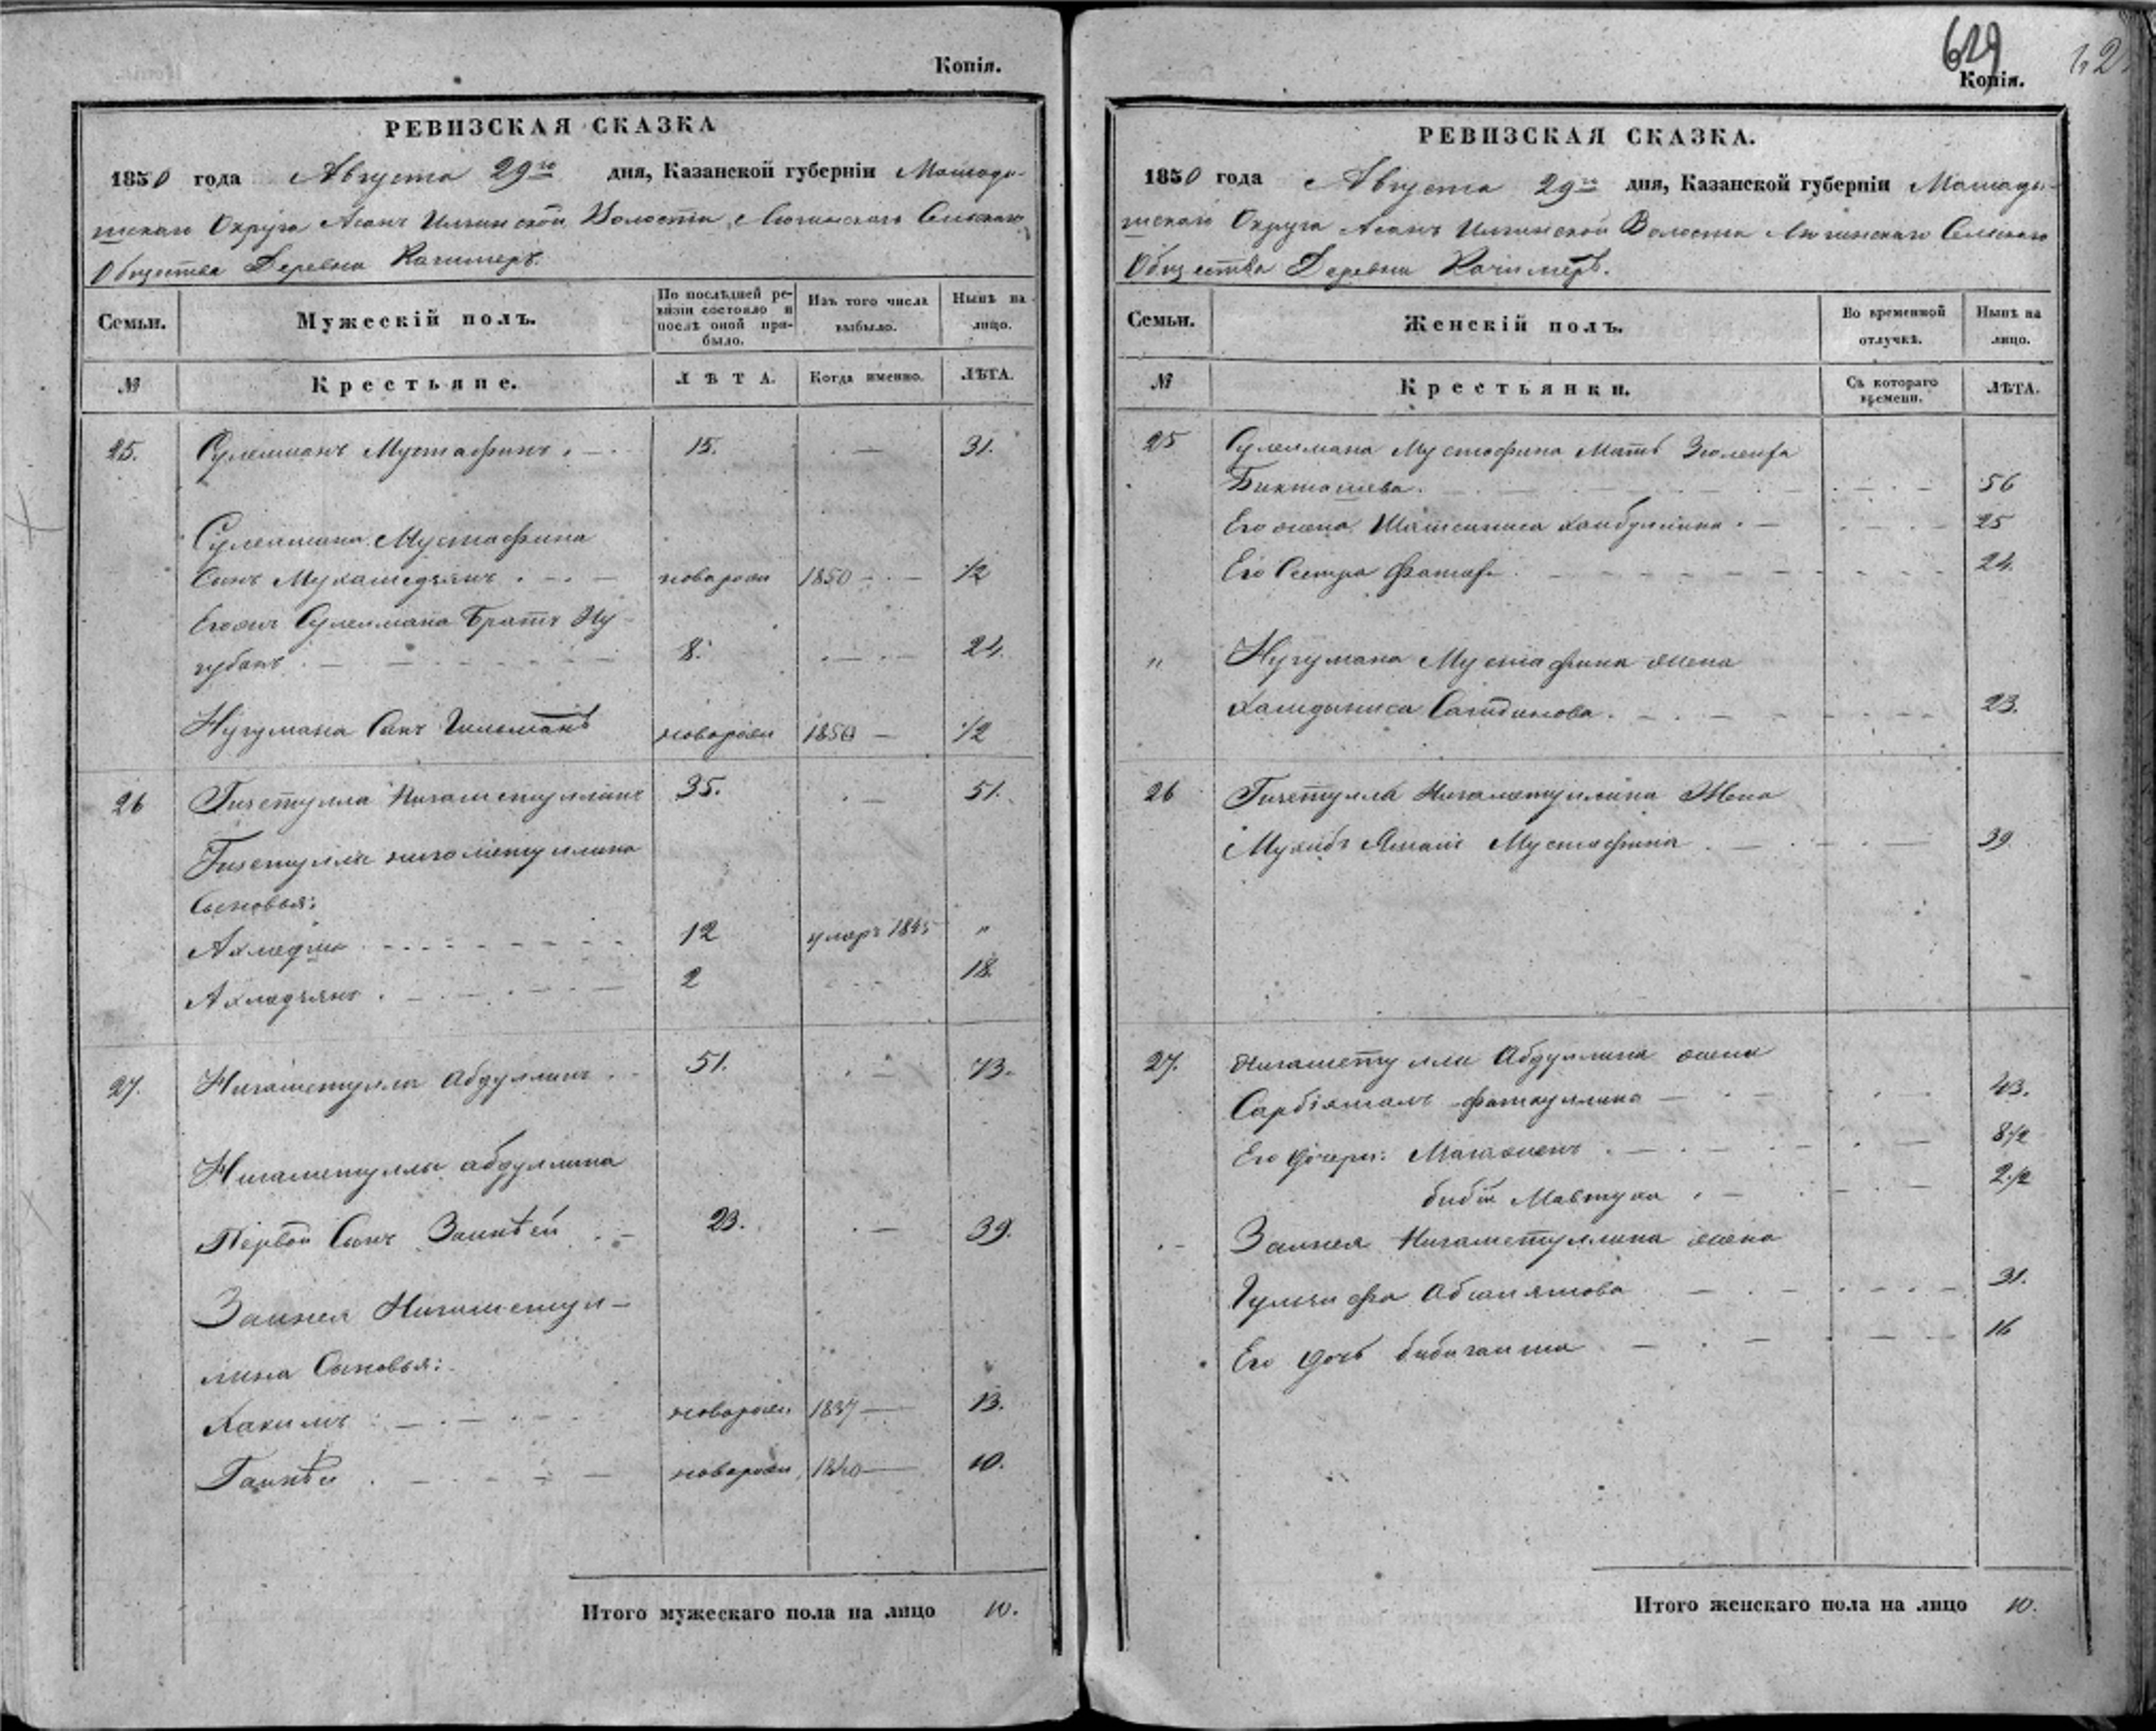 Копія.
РЕВИЗСКАЯ СКАЗКА
1850 года Августа 29го дня, Казанской губерніи Мамады-
шскаго Округа Асанъ Илгинской Волости Сельскаго
Общества Деревни Качимеръ.
Семьи. Мужескій полъ. По послѣдней ре- Изъ того числа Нынѣ на
визіи состояло и выбыло. лицо.
послѣ оной при-
было.
№ Крестьяне. ЛѢТА. Когда именно. ЛѢТА.
25. Сулейманъ Мустафинъ 15. 31.
Сулеймана Мустафина
Сынъ Мухамедзянъ новорож 1850 1/2
Егожъ Сулеймана Братъ Ну-
8. 24.
Нугумана Сынъ новорож 1850 1/2
26 Гизетулла Нигаметуллинъ 35. 51.
Гизетуллы Нигаметуллина
Сыновья:
Ахметша 12 умеръ 1845 "
Ахмадзянъ 2 18.
27. Нигаметулла Абдуллинъ 51. 73.
Нигаметуллы Абдуллина
Первой Сынъ Заинѣй 23. 39.
Заинея Нигаметул-
лина Сыновья:
Хакимъ новорож 1837 13.
Гаинѣй новорож 1840 10.
Итого мужескаго пола на лицо 10.
629
Копія.
РЕВИЗСКАЯ СКАЗКА.
1850 года Августа 29го дня, Казанской губерніи Мамады-
шскаго Округа Асанъ Илгинской Волости Сельскаго
Общества Деревни Качимеръ.
Семьи. Женскій полъ. Во временной Нынѣ на
отлучкѣ. лицо.
№ Крестьянки. Съ котораго ЛѢТА.
времени.
25 Сулеймана Мустафина Мать Зюлейфа
Бикташева. 56
Его жена Шамсиниса Хаибуллина 25
Его Сестра 24.
" Нугумана Мустафина жена
Хамдыниса Сагидинова. 23.
26 Гизетулла Нигаметуллина Жена
Мухибъ Ямалъ Мустафина 39
27. Нигаметуллы Абдуллина жена
Сарбіямалъ Фаткуллина 43.
Его дочери: 8 1/2
биби Мавтуха 2 1/2
Заинея Нигаметуллина жена
31.
Его дочь Бибигаиша 16
Итого женскаго пола на лицо 10.